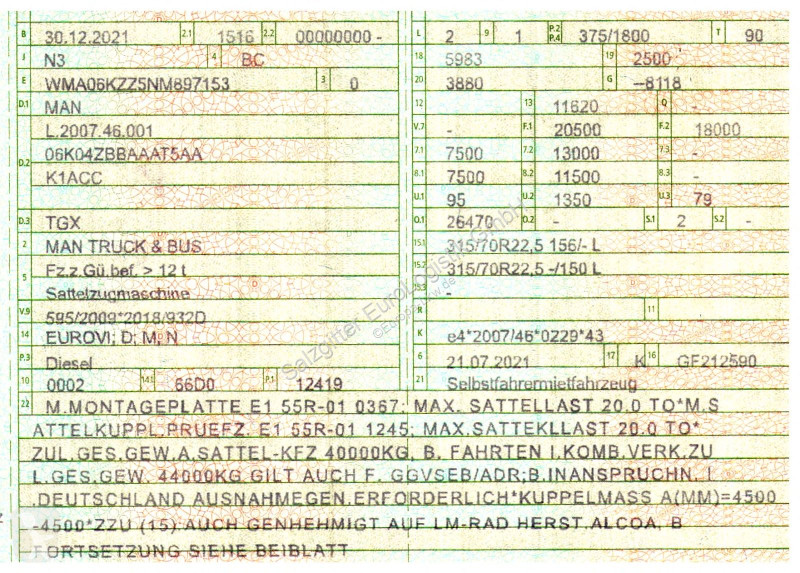 B 30.12.2021 2.1 1516 2.2 00000000 -
J N3 4 BC
E WMA06KZZ5NM897153 3 0
D.1 MAN
L.2007.46.001
D.2 06K04ZBBAAAT5AA
K1ACC
D.3 TGX
2 MAN TRUCK & BUS
5 Fz.z.Gü.bef. > 12 t
Sattelzugmaschine
V.9 595/2009*2018/932D
14 EUROVI; D; M, N
P.3 Diesel
10 0002 14.1 66D0 P.1 12419
L 2 9 1 P.2 P.4 375/1800 T 90
18 5983 19 2500
20 3880 G --8118
12 - 13 11620 Q -
V.7 - F.1 20500 F.2 18000
7.1 7500 7.2 13000 7.3 -
8.1 7500 8.2 11500 8.3 -
U.1 95 U.2 1350 U.3 79
O.1 26470 O.2 - S.1 2 S.2 -
15.1 315/70R22,5 156/- L
15.2 315/70R22,5 -/150 L
15.3 -
R 11
K e4*2007/46*0229*43
6 21.07.2021 17 K 16 GF212590
21 Selbstfahrermietfahrzeug
22 M.MONTAGEPLATTE E1 55R-01 0367; MAX. SATTELLAST 20.0 TO*M.S
ATTELKUPPL.PRUEFZ. E1 55R-01 1245; MAX.SATTEKLLAST 20.0 TO*
ZUL.GES.GEW.A.SATTEL-KFZ 40000KG, B. FAHRTEN I.KOMB.VERK.ZU
L.GES.GEW. 44000KG GILT AUCH F. GGVSEB/ADR;B.INANSPRUCHN. I
.DEUTSCHLAND AUSNAHMEGEN.ERFORDERLICH*KUPPELMASS A(MM)=4500
-4500*ZZU (15) AUCH GENHEHMIGT AUF LM-RAD HERST.ALCOA, B
FORTSETZUNG SIEHE BEIBLATT